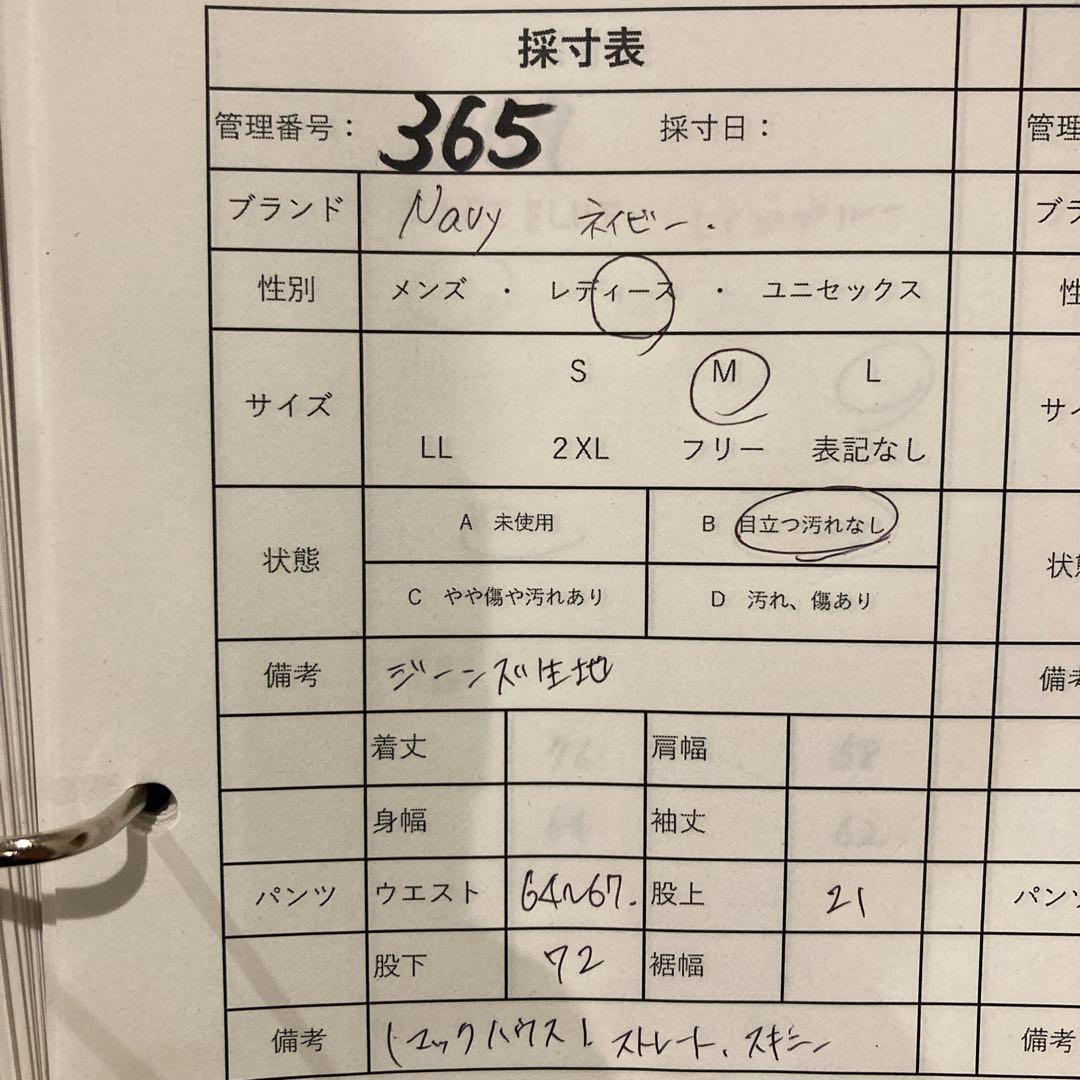 採寸表
管理番号： 365 採寸日： 管理
ブランド Navy ネイビー. ブラ
性別 メンズ ・ レディース ・ ユニセックス 性
S M L
サイズ サイ
LL 2XL フリー 表記なし
A 未使用 B 目立つ汚れなし
状態 状態
C やや傷や汚れあり D 汚れ、傷あり
備考 ジーンズ生地 備考
着丈 肩幅
身幅 袖丈
パンツ ウエスト 64～67. 股上 21 パンツ
股下 72 裾幅
備考 (マックハウス) ストレート、スキニー 備考